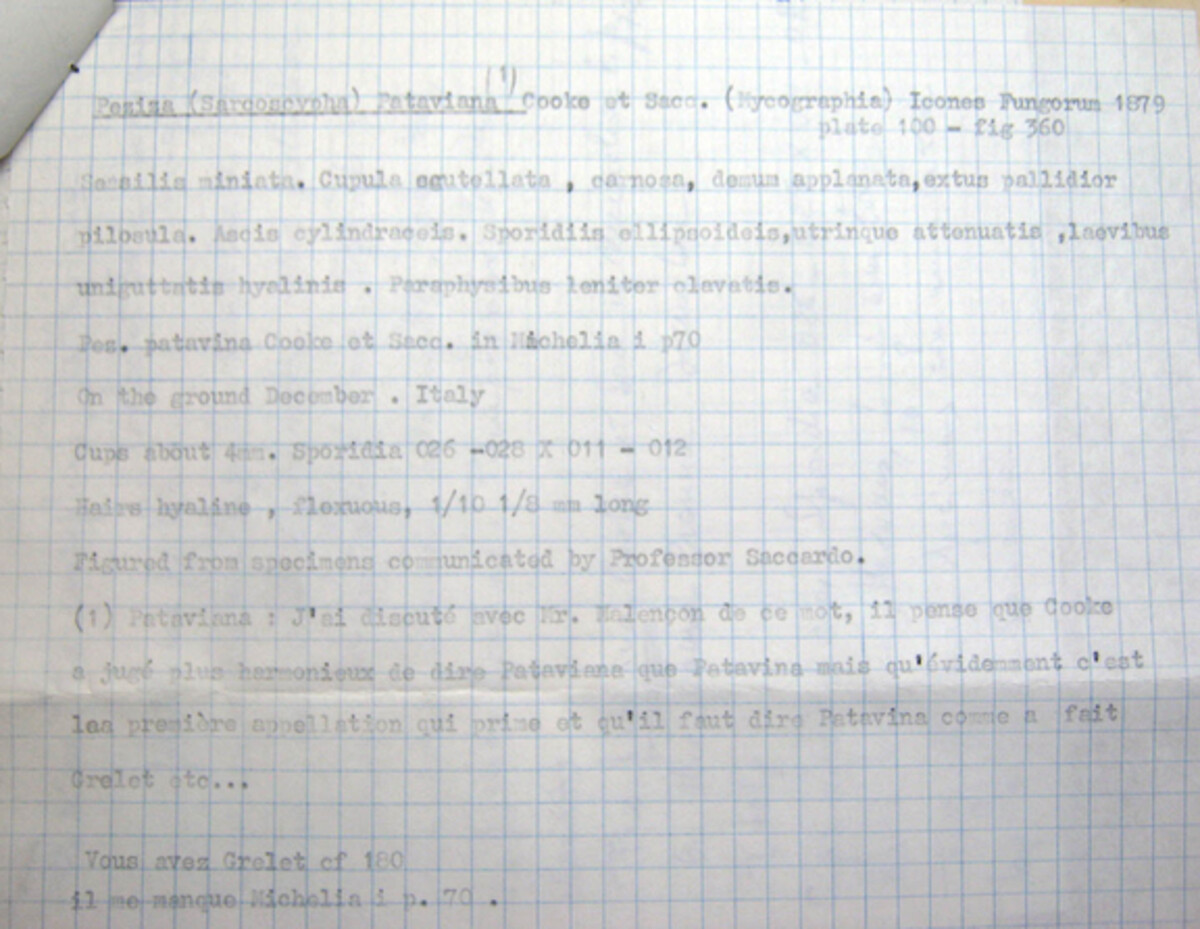 Peziza (Sarcoscypha) Pataviana (1) Cooke et Sacc. (Mycographia) Icones Fungorum 1879
plate 100 - fig 360
Sessilis miniata. Cupula scutellata , carnosa, demum applanata,extus pallidior
pilosula. Ascis cylindraceis. Sporidiis ellipsoideis,utrinque attenuatis ,laevibus
uniguttatis hyalinis . Paraphysibus leniter clavatis.
Pez. patavina Cooke et Sacc. in Michelia i p70
On the ground December . Italy
Cups about 4mm. Sporidia 026 -028 X 011 - 012
Hairs hyaline , flexuous, 1/10 1/8 mm long
Figured from specimens communicated by Professor Saccardo.
(1) Pataviana : J'ai discuté avec Mr. Malençon de ce mot, il pense que Cooke
a jugé plus harmonieux de dire Pataviana que Patavina mais qu'évidemment c'est
lea première appellation qui prime et qu'il faut dire Patavina comme a fait
Grelet etc...
Vous avez Grelet cf 180
il me manque Michelia i p. 70 .